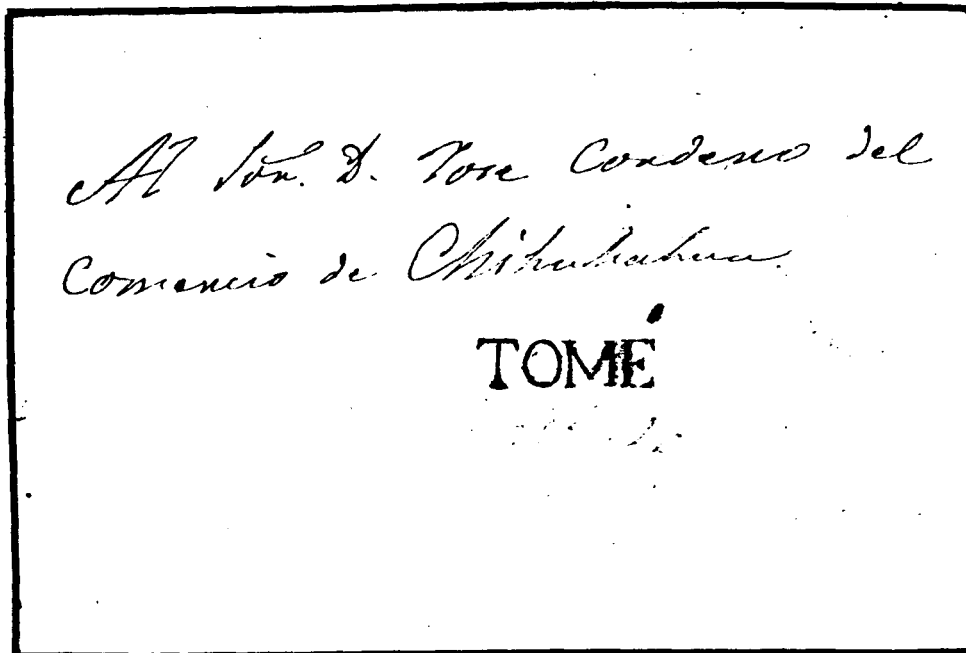 Al Sōn. D. Jose Cordero del
Comercio de Chihuhahua.
TOMÉ